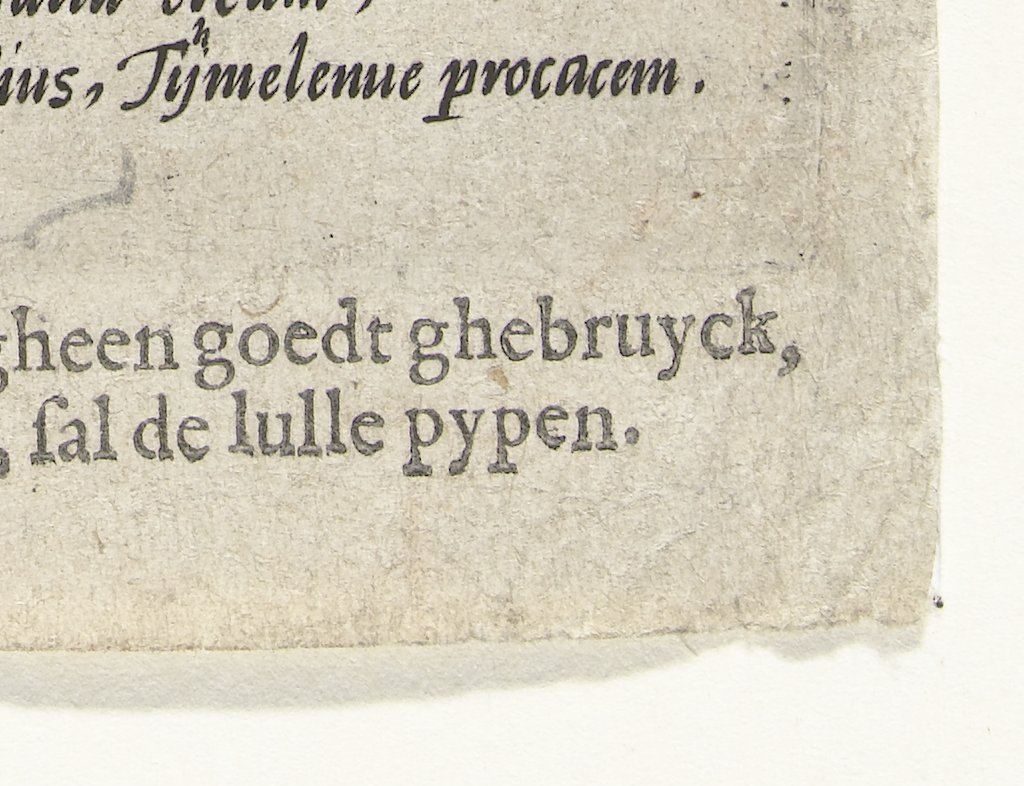 ius, Tÿmelenue procacem.
gheen goedt ghebruyck,
, ſal de lulle pypen.